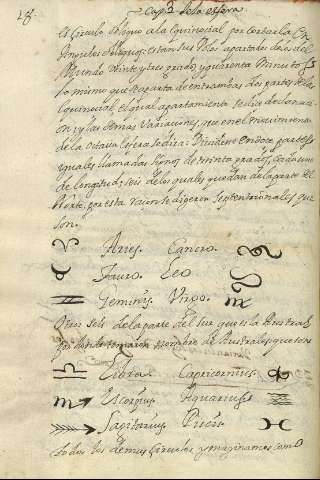 28 Cap. 2 de la esfera
es circulo obliquo a la equinocial por cortarla en
Angulos obliquos: estan sus Polos apartados de los del
Mundo veinte y tres grados, y quarenta Minutos
lo mismo que se aparta de entrambas dos partes de la
Equinocial, el qual apartamiento se dice declinacion
y las demas Variaciones, que en el movimiento
de la octava esfera se dira: Dividese en doce partes
yguales llamadas signos de treinta grados, cada uno
de longitud; seis de los quales quedan de la parte del
Norte, por esta razon se digeron Septentrionales que
son.
♈ Aries. Cancro. ♋
♉ Tauro. Leo ♌
♊ Geminis. Virgo. ♍
Otros seis de la parte del Sur que es la Austral
por donde nombre de Australes que son
♎ Libra. Capricornius. ♑
♏ Escorpius. Aquarius. ♒
♐ Sagitarius. Piscis. ♓
todos los demas Circulos y maginamos como